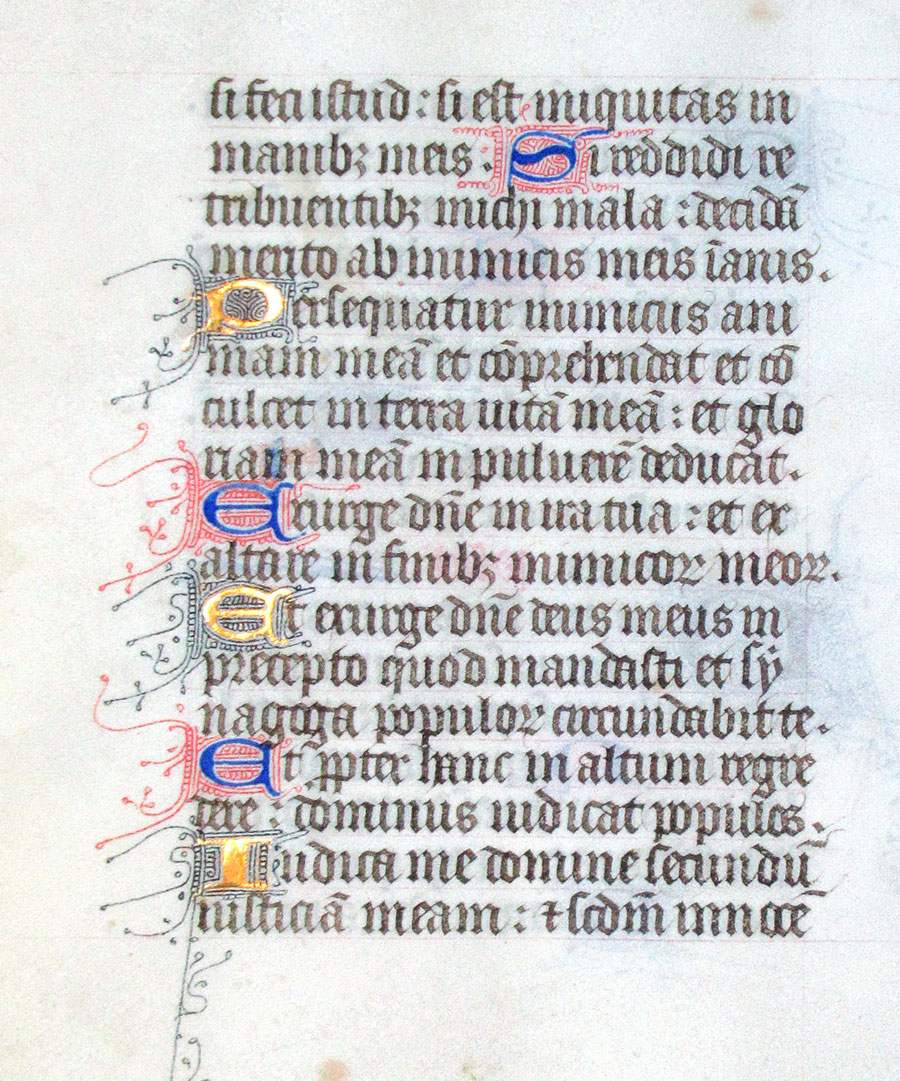 si feci istud : si est iniquitas in
manibꝫ meis . Si reddidi re
tribuentibꝫ michi mala : decidā
merito ab inimicis meis īanis .
Persequatur inimicus ani
mam meā et cōprehendat et cō
culcet in terra uitā meā : et glo
riam meā in puluerē deducat .
Exurge dn̄e in ira tua : et ex
altare in finibꝫ inimicoꝝ meoꝝ .
Et exurge dn̄e deus meus in
precepto quod mandasti et sy
nagoga populoꝝ circundabit te .
Et ꝓpter hanc in altum regre
dere : dominus iudicat populos .
Iudica me domine secundū
iusticiā meam : ⁊ scdm̄ innocē